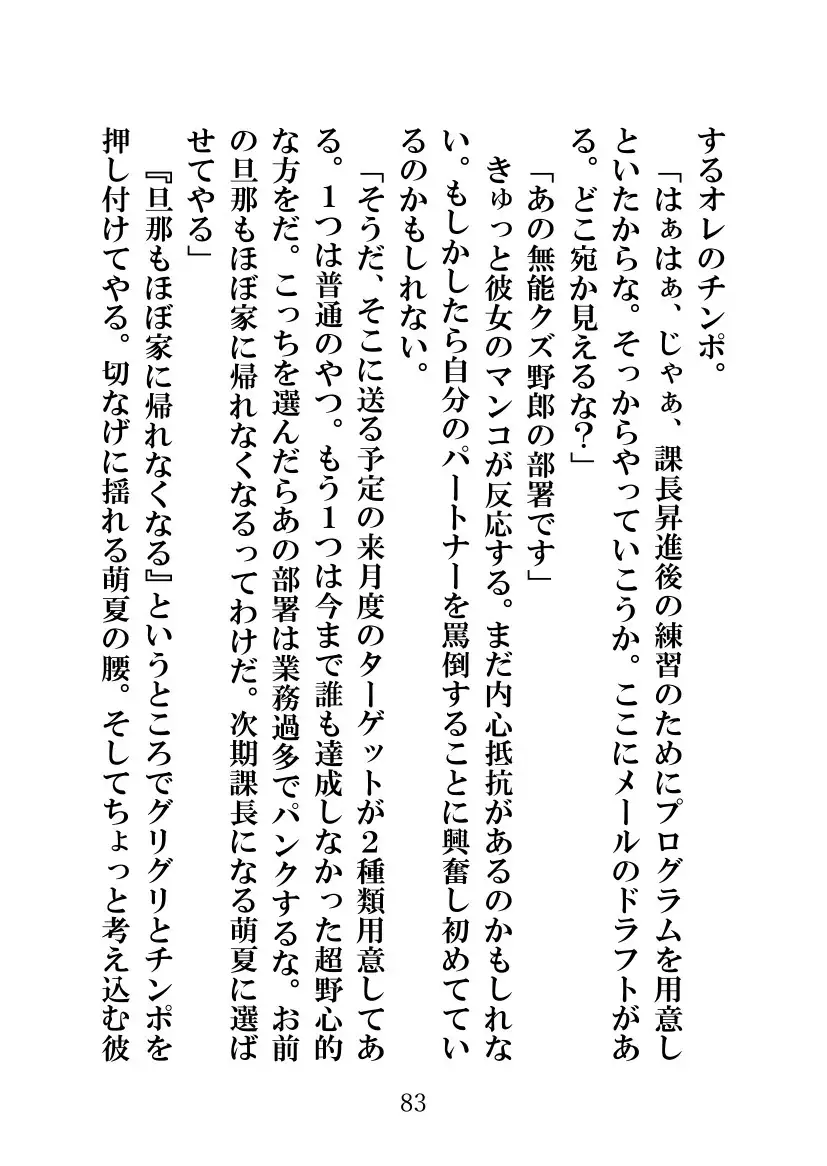 するオレのチンポ。
「はぁはぁ、じゃぁ、課長昇進後の練習のためにプログラムを用意し
といたからな。そっからやっていこうか。ここにメールのドラフトがあ
る。どこ宛か見えるな？」
「あの無能クズ野郎の部署です」
きゅっと彼女のマンコが反応する。まだ内心抵抗があるのかもしれな
い。もしかしたら自分のパートナーを罵倒することに興奮し初めててい
るのかもしれない。
「そうだ、そこに送る予定の来月度のターゲットが２種類用意してあ
る。１つは普通のやつ。もう１つは今まで誰も達成しなかった超野心的
な方をだ。こっちを選んだらあの部署は業務過多でパンクするな。お前
の旦那もほぼ家に帰れなくなるってわけだ。次期課長になる萌夏に選ば
せてやる」
『旦那もほぼ家に帰れなくなる』というところでグリグリとチンポを
押し付けてやる。切なげに揺れる萌夏の腰。そしてちょっと考え込む彼
83